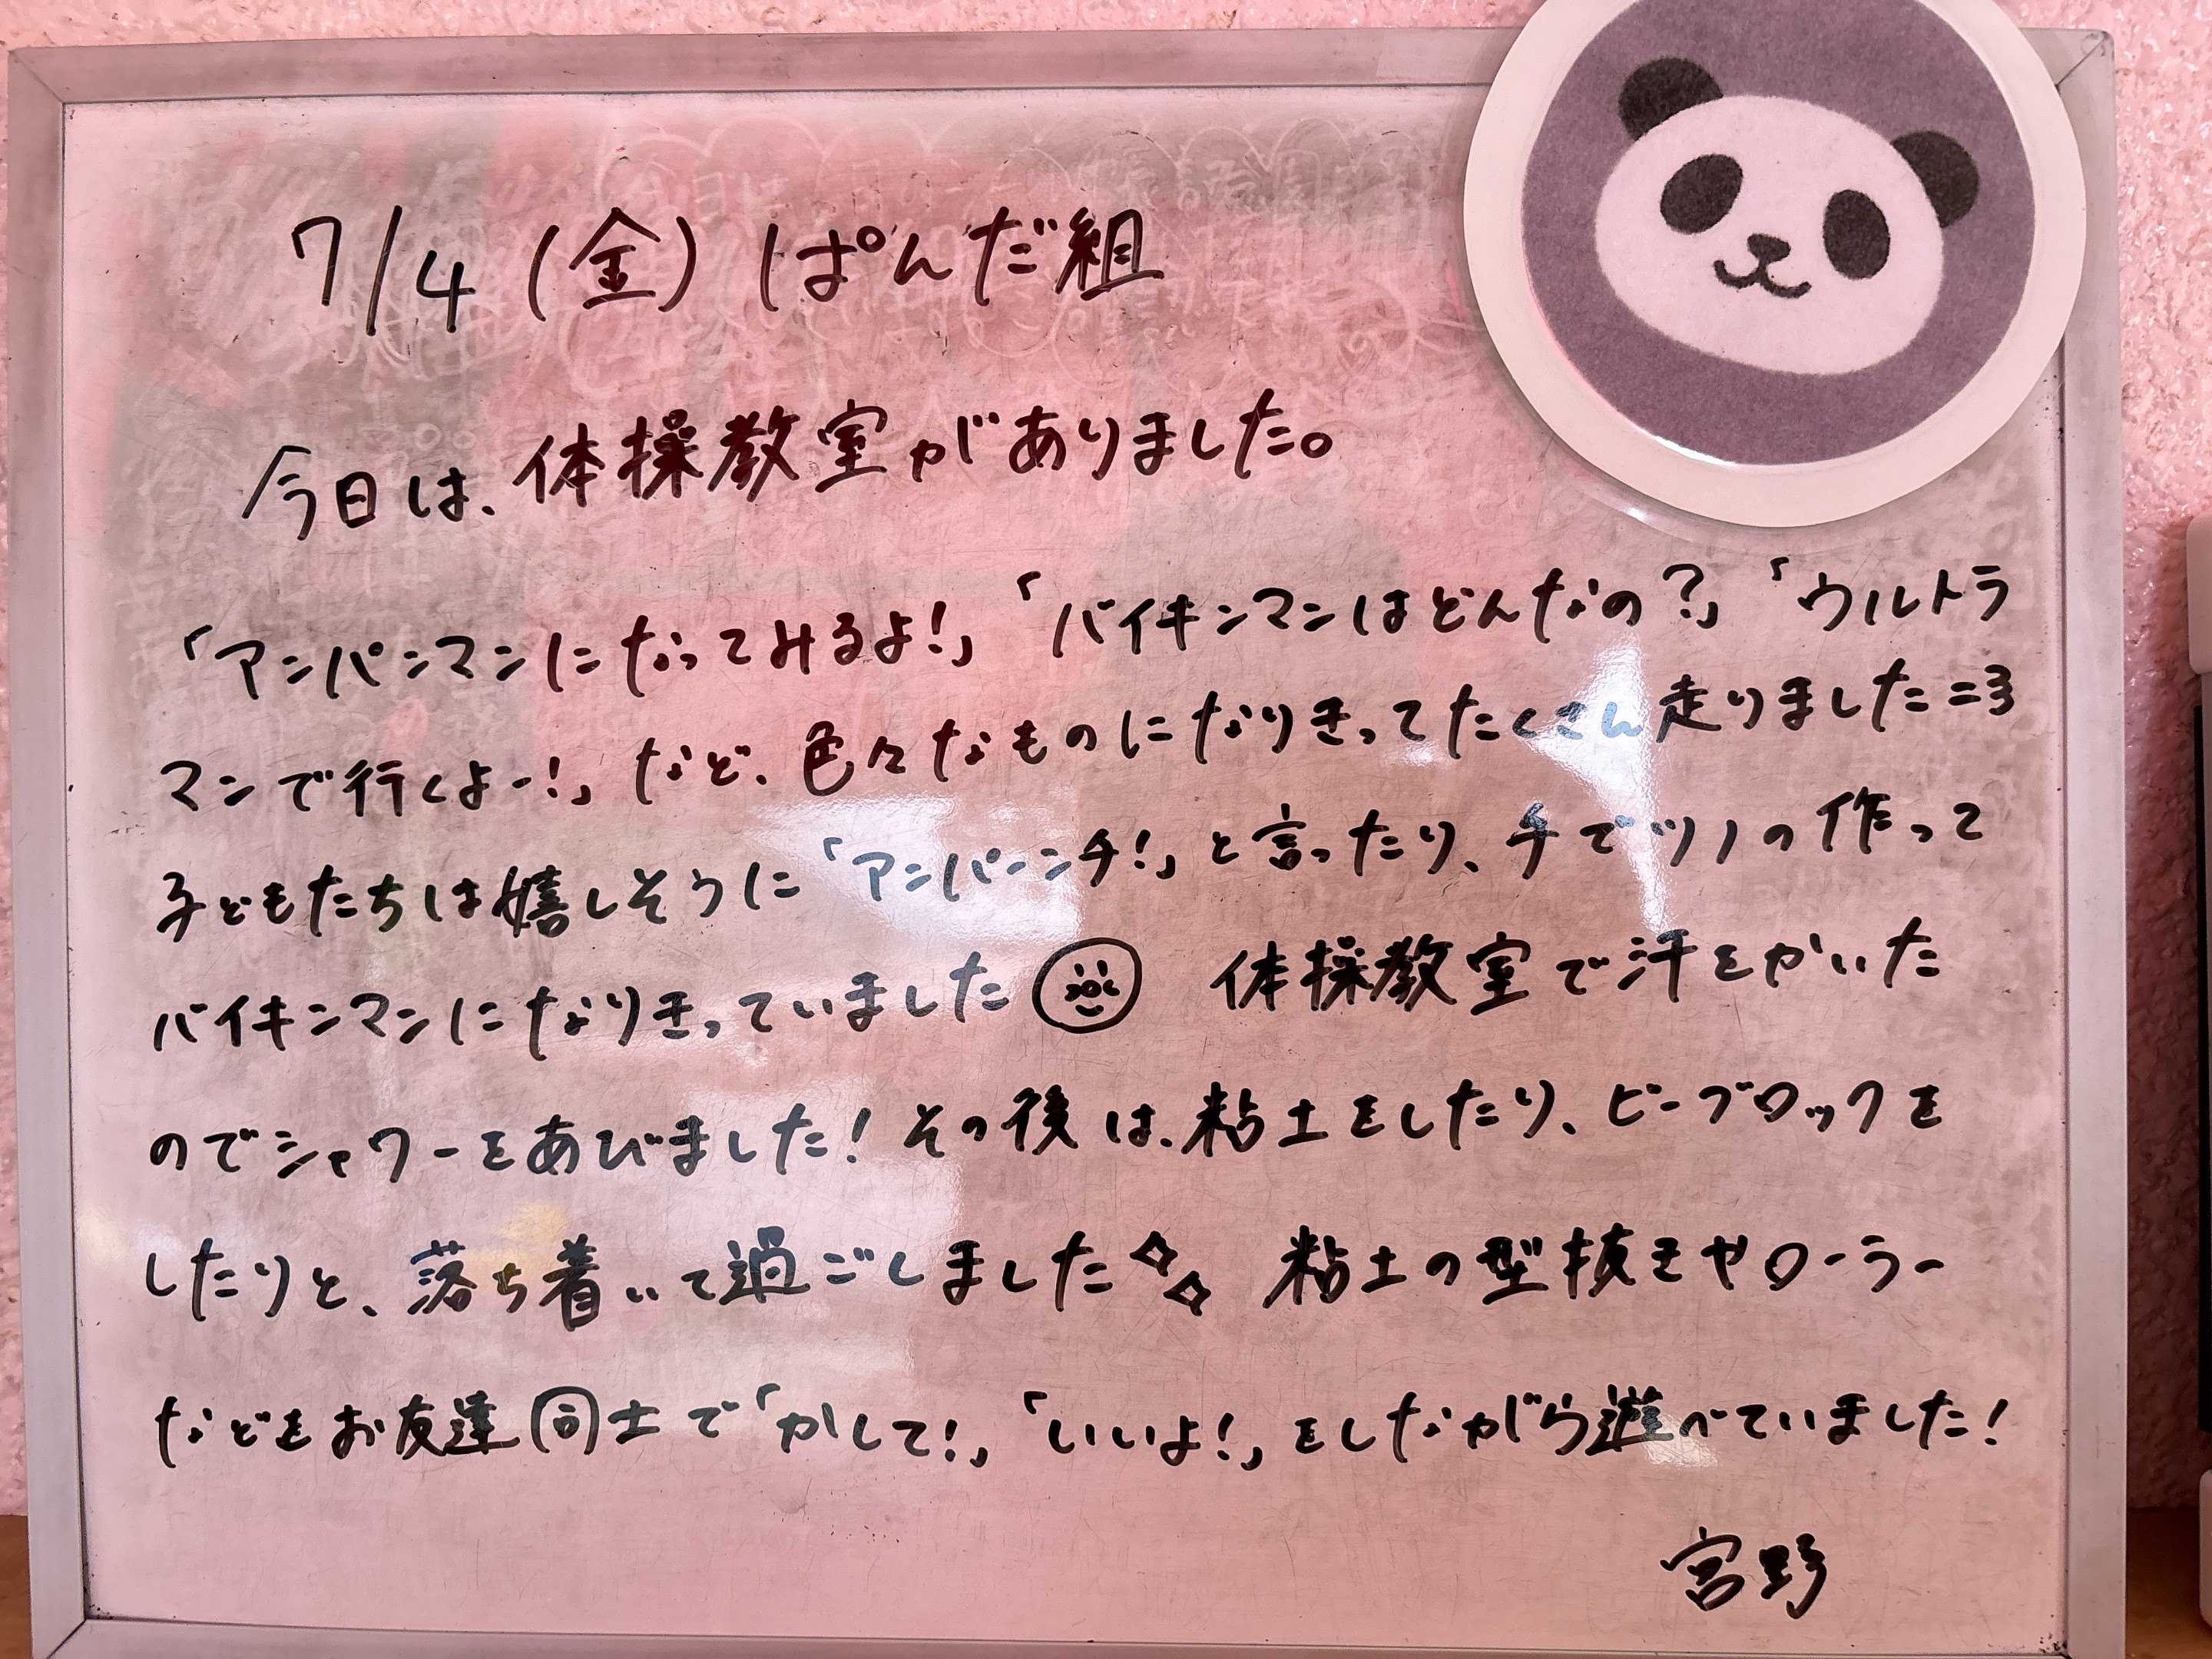 7/4 (金) ぱんだ組
今日は、体操教室がありました。
「アンパンマンになってみるよ!」「バイキンマンはどんなの?」「ウルトラ
マンで行くよー!」など、色々なものになりきってたくさん走りました=3
子どもたちは嬉しそうに「アンパーンチ!」と言ったり、手でツノの作って
バイキンマンになりきっていました 体操教室で汗をかいた
のでシャワーをあびました! その後は、粘土をしたり、ビーブロックを
したりと、落ち着いて過ごしました 粘土の型抜きやローラー
などをお友達同士で「かして!」「いいよ!」をしながら遊べていました!
宮野